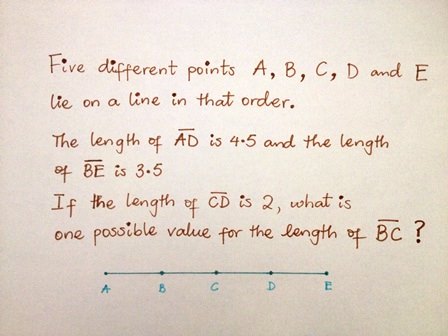 Five different points A, B, C, D and E
lie on a line in that order.
The length of A̅D̅ is 4·5 and the length
of B̅E̅ is 3·5
If the length of C̅D̅ is 2, what is
one possible value for the length of B̅C̅ ?
A B C D E